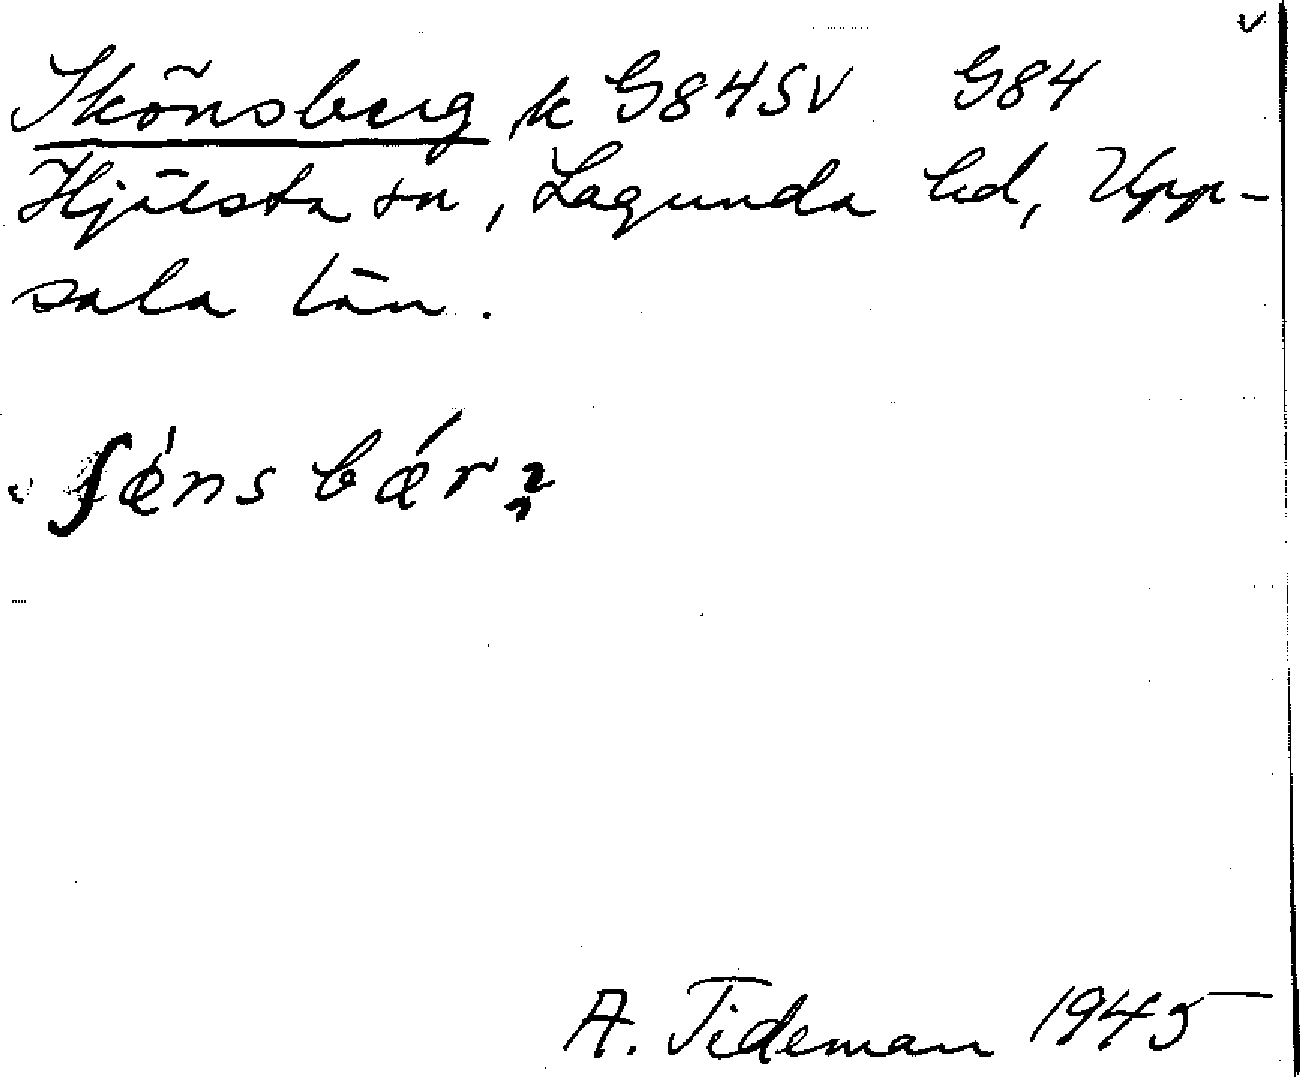 Skönsberg k G84SV G84
Hjälsta sn, Lagunda hd, Upp-
sala län.
A. Tideman 1945